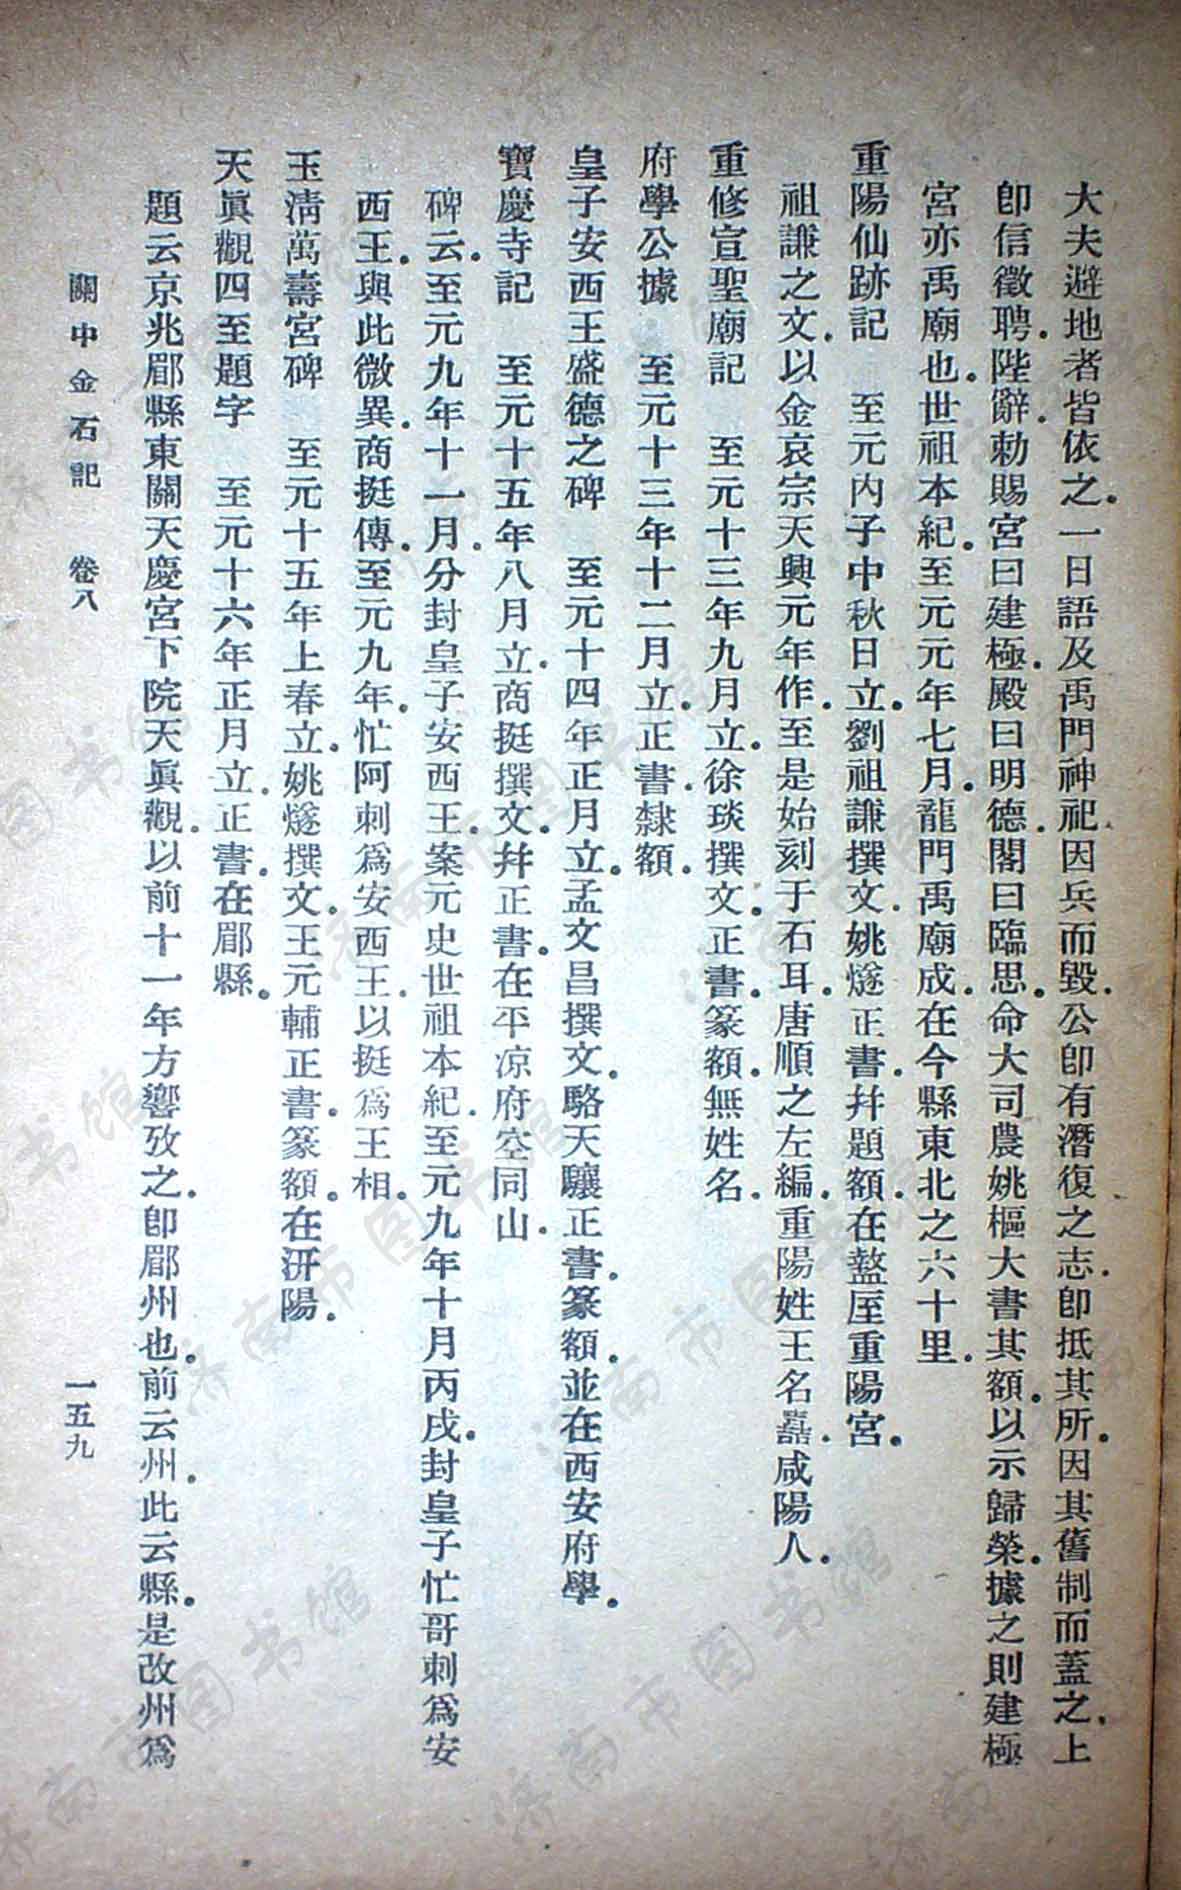 大夫避地者皆依之.一日語及禹門神祀因兵而毀.公卽有潛復之志.卽抵其所.因其舊制而蓋之.上
卽信徵聘.陛辭.勅賜宮曰建極.殿曰明德.閣曰臨思.命大司農姚樞大書其額.以示歸榮.據之則建極
宮亦禹廟也.世祖本紀.至元元年七月.龍門禹廟成.在今縣東北之六十里.
重陽仙跡記 至元內子中秋日立.劉祖謙撰文.姚燧正書.幷題額.在盩厔重陽宮.
祖謙之文.以金哀宗天興元年作.至是始刻于石耳.唐順之左編.重陽姓王名嚞.咸陽人.
重修宣聖廟記 至元十三年九月立.徐琰撰文.正書.篆額.無姓名.
府學公據 至元十三年十二月立.正書.隸額.
皇子安西王盛德之碑 至元十四年正月立.孟文昌撰文.駱天驤正書.篆額.並在西安府學.
寶慶寺記 至元十五年八月立.商挺撰文.幷正書.在平涼府空同山.
碑云.至元九年十一月.分封皇子安西王.案元史世祖本紀.至元九年十月丙戌.封皇子忙哥刺爲安
西王.與此微異.商挺傳.至元九年.忙阿刺爲安西王.以挺爲王相.
玉淸萬壽宮碑 至元十五年上春立.姚燧撰文.王元輔正書.篆額.在汧陽.
天眞觀四至題字 至元十六年正月立.正書.在郿縣.
題云京兆郿縣東關天慶宮下院天眞觀.以前十一年方響攷之.卽郿州也.前云州.此云縣.是改州爲
關中金石記 卷八 一五九
济南市图书馆